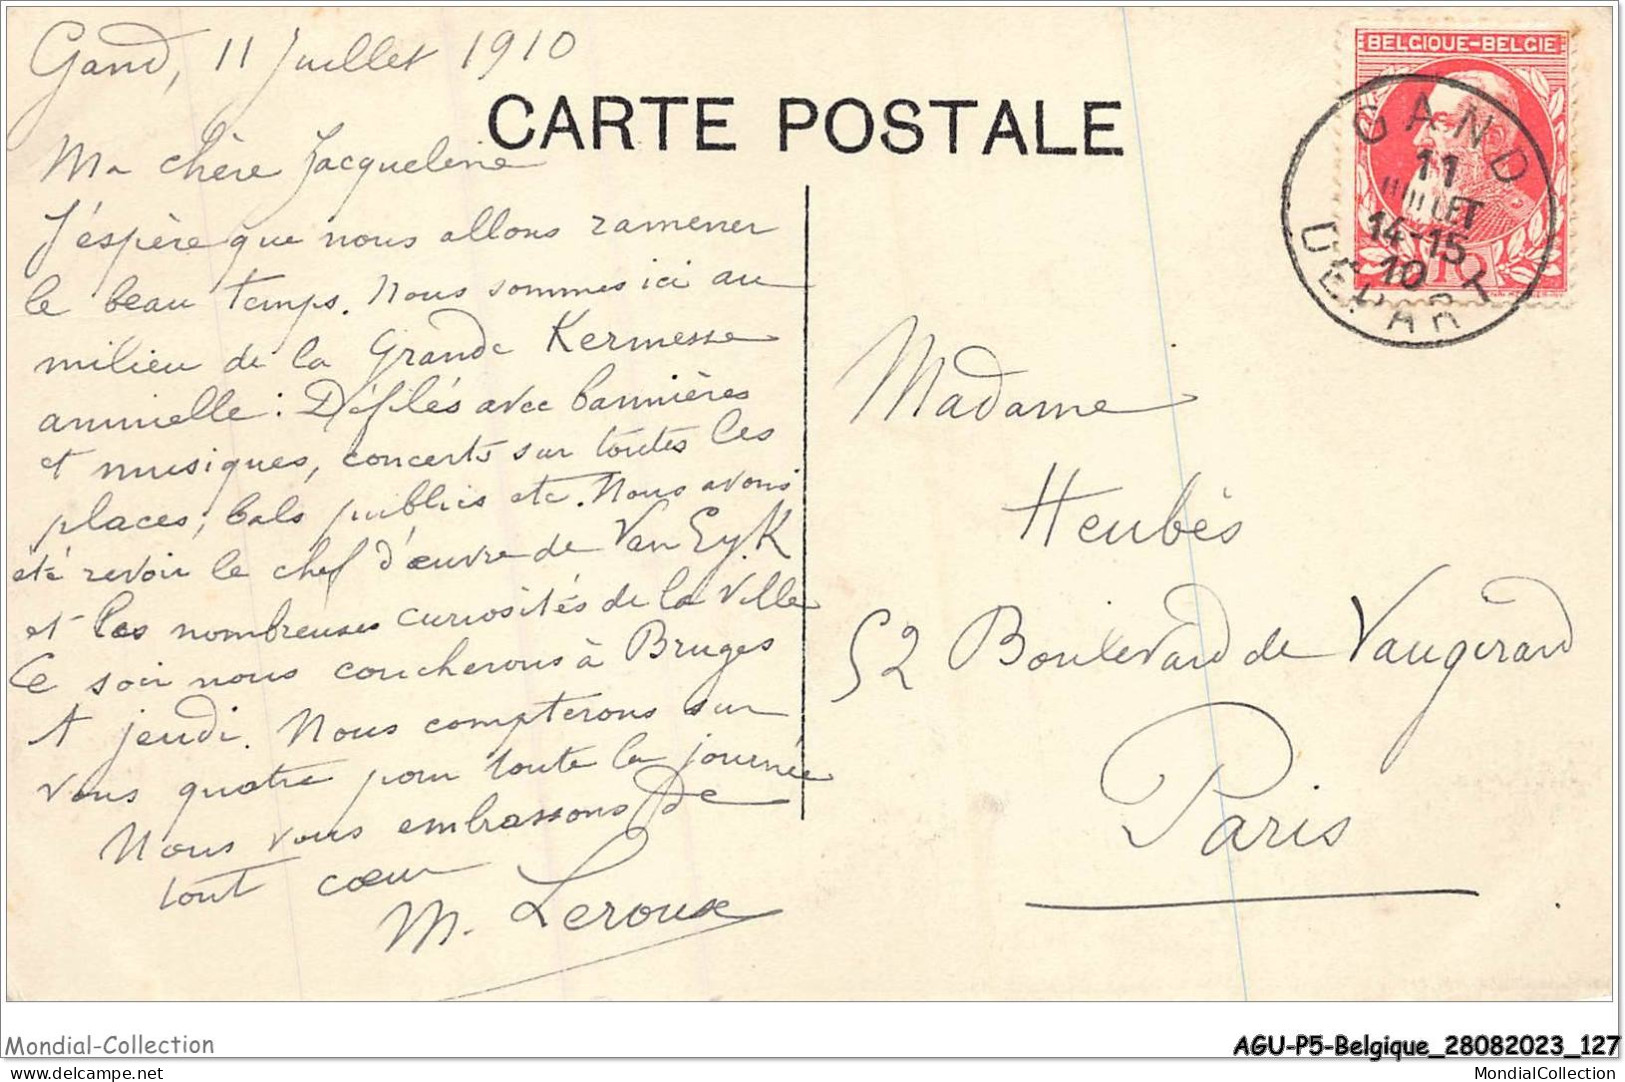 Gand, 11 Juillet 1910
CARTE POSTALE
Ma chère Jacqueline
J'éspère que nous allons ramener
le beau temps. Nous sommes ici au
milieu de la Grande Kermesse
annuelle : Défilés avec bannières
et musiques, concerts sur toutes les
places, bals publics etc. Nous avons
été revoir le chef d'œuvre de Van Eyck
et les nombreuses curiosités de la Ville
Ce soir nous coucherons à Bruges
A jeudi. Nous compterons sur
vous quatre pour toute la journée
Nous vous embrassons de
tout cœur
M. Leroux
BELGIQUE-BELGIE
GAND
11
JUILLET
14-15
10
DÉPART
10
Madame
Heubès
52 Boulevard de Vaugirard
Paris
Mondial-Collection
AGU-P5-Belgique_28082023_127
delcampe.net
MondialCollection